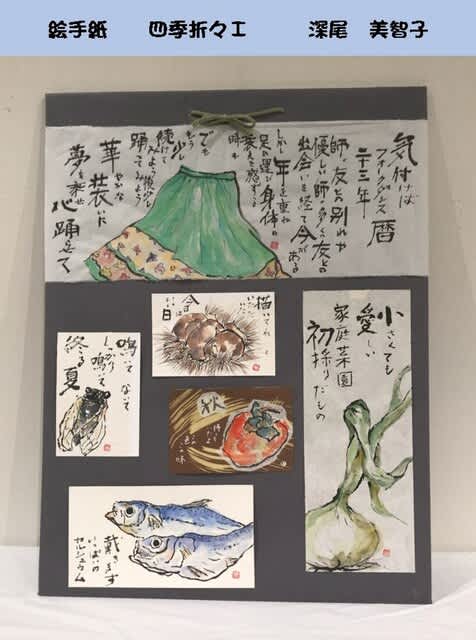 絵手紙 四季折々Ⅰ 深尾 美智子
気付けば
フォークダンス暦
二十三年
師、友との別れや
優しい師・多くの友との
出会いを経て今がある
しかし年を重ね
足の運び身体の
衰えを感ずる
時も
でも
もう少し
続けて
みよう後少し
踊ってみよう
華やかな
装いに
夢を乗せ
心踊らせて
小さくても
愛しい
家庭菜園
初採りだもの
鳴いて ないて
しっかり鳴いて
終る夏
秋
戴きます
いっぱいの
カルシュウム